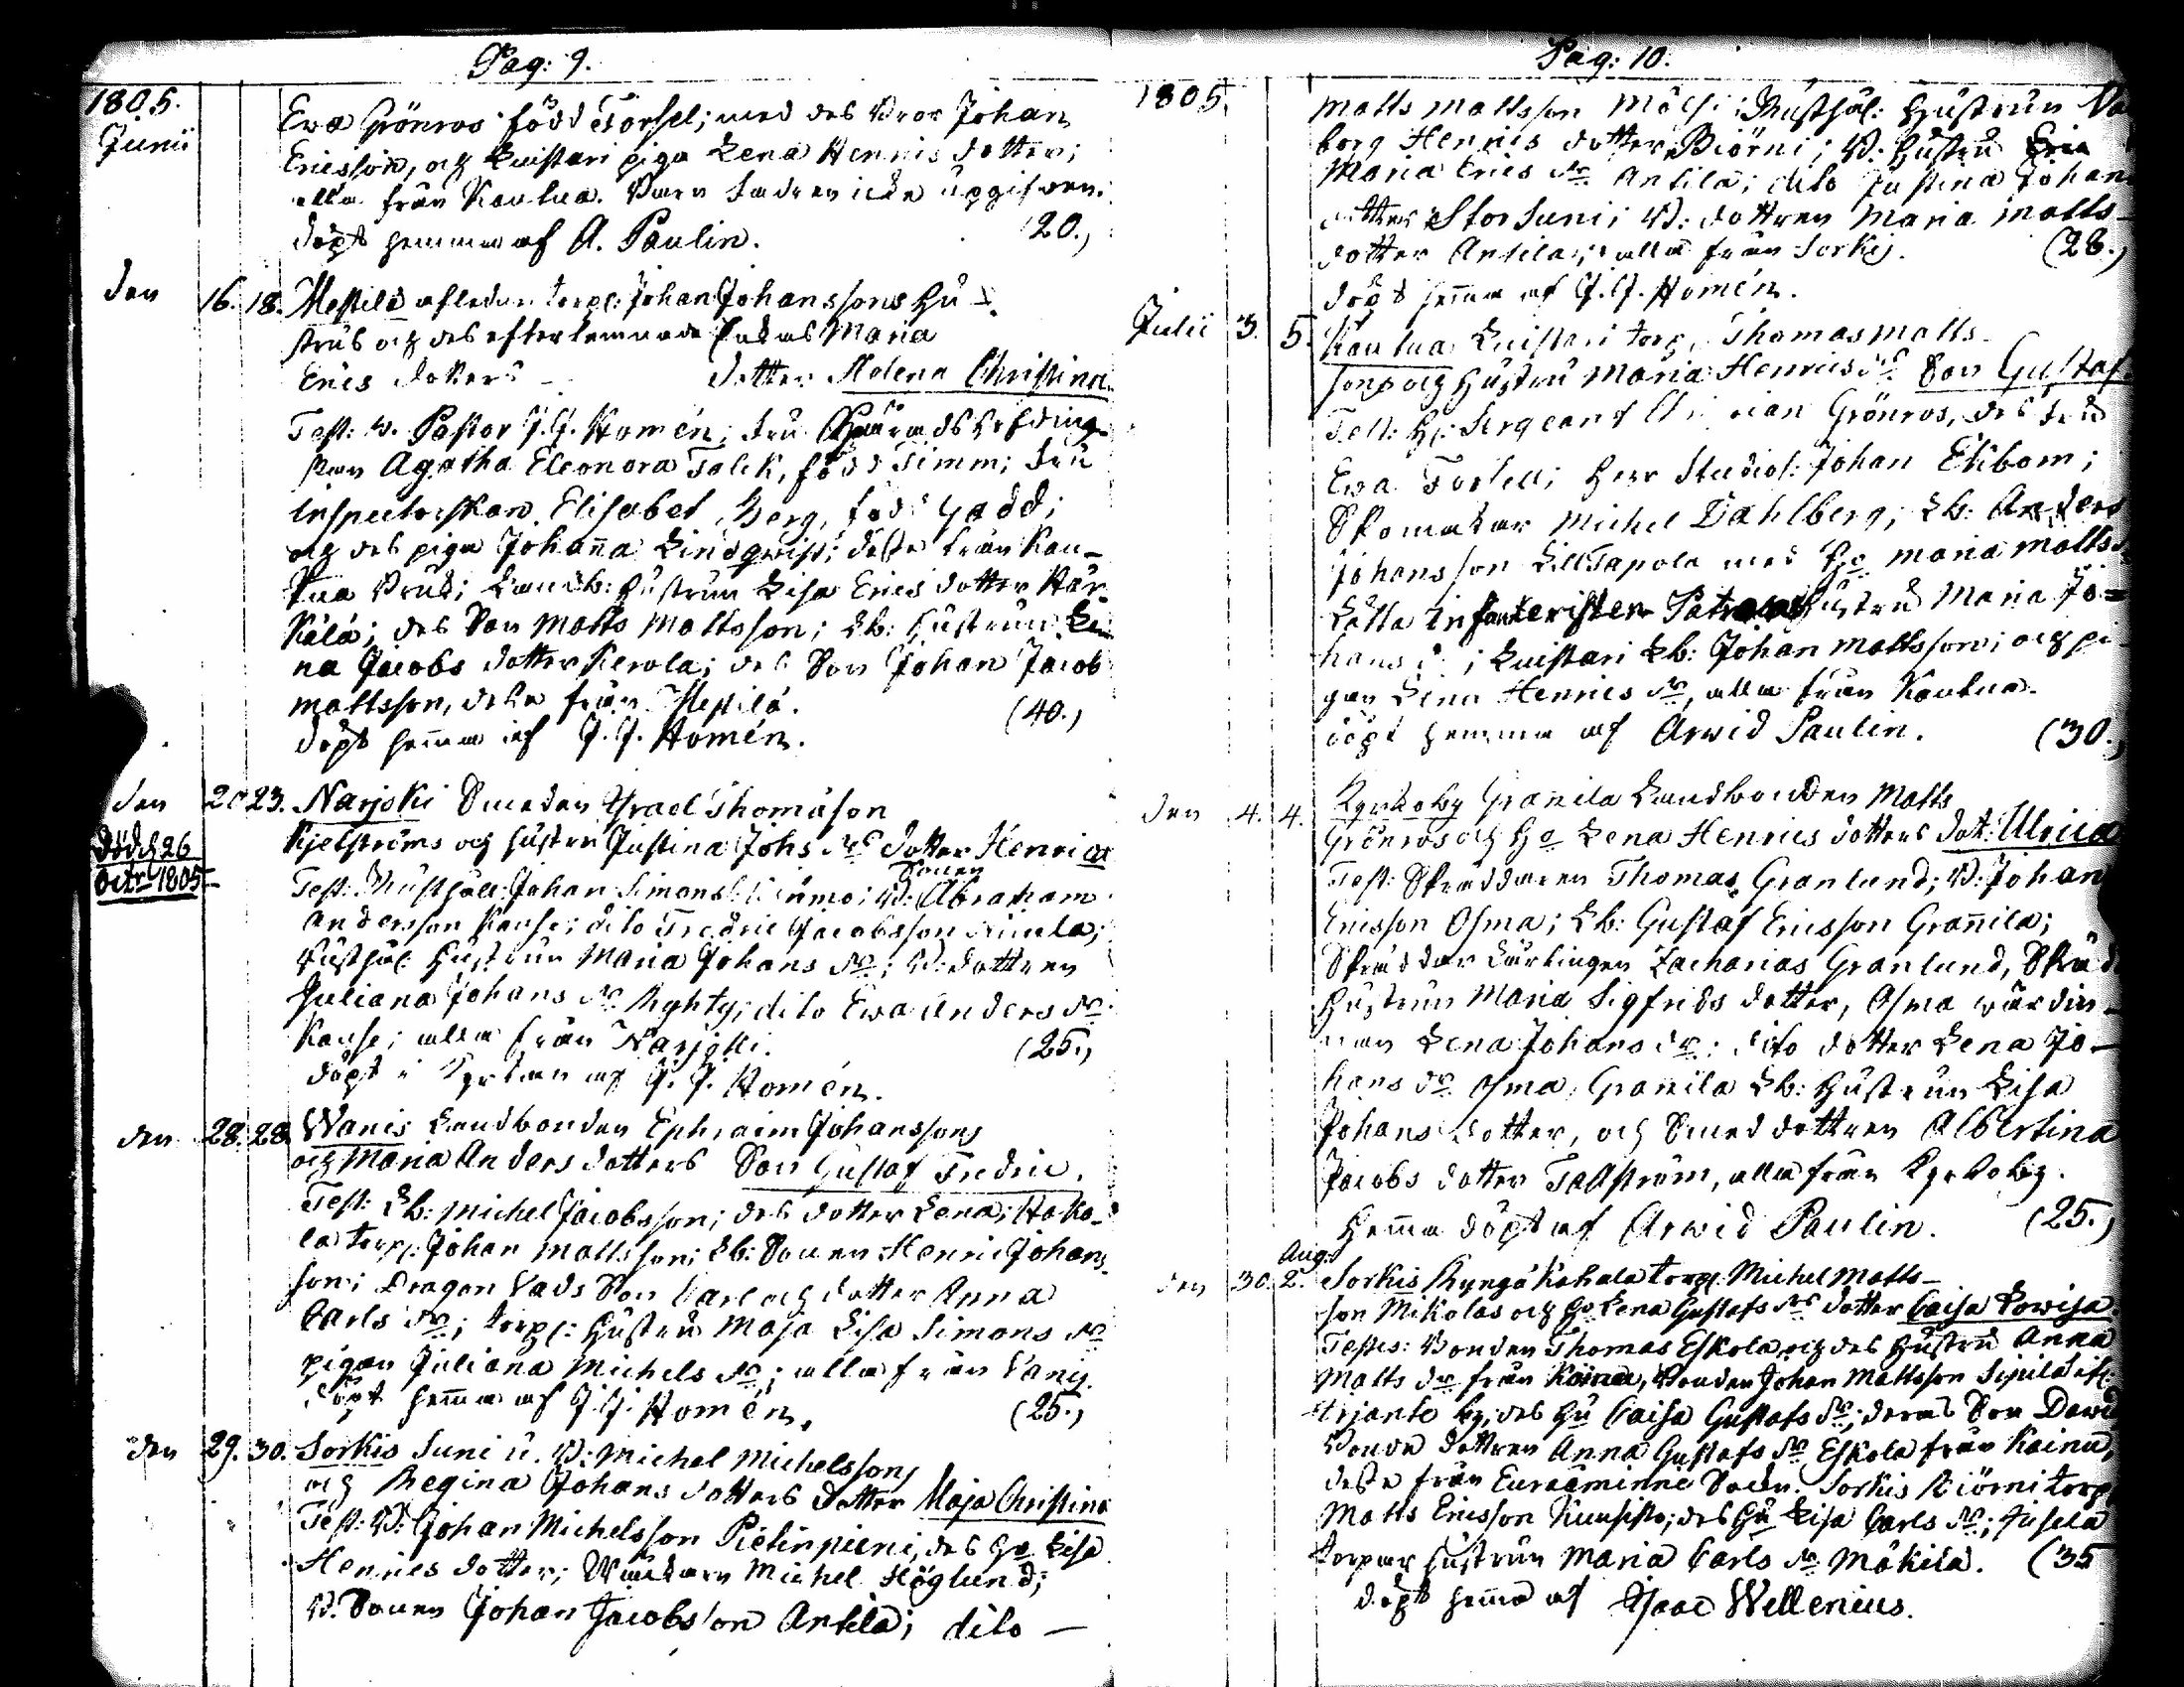 Pag: 9.
1805.
Junii
Ewa Grönros född Forsel; med des Bror Johan
Ericsson, och Luistari piga Lena Henris dotter;
alla från Kautua. Barn fadren icke upgifwen.
döpt hemma af A. Paulin. (20.)
den 16. 18. Mestilä afledne torp: Johan Johanssons Hu-
strus och des efterlemnade Enkas Maria
Erics dotters dotter Helena Christina.
Test: W. Pastor J. J. Homén; Fru Häradshöfding-
skan Agatha Eleonora Falck, född Simm; Fru
Inspectorskan Elisabet Berg, född Gadd;
och des piga Johanna Lindqwist; desse från Kau-
tua Bruk; Landb: hustrun Lisa Erics dotter Här-
kälä; des Son Matts Mattsson; Lb: hustrun Le
na Jacobs dotter Kerola; des Son Johan Jacob
Mattsson, desse från Mestilä.
döpt hemma af J. J. Homén. (40.)
den 20 23. Narjoki Smeden Israel Thomason
Kjelströms och hustru Justina Johs drs dotter Henrica
Död d. 26
Octr 1805
Test: Rusthåll: Johan Simonss. B: Sonen Abraham
Andersson Kause; dito Fredric Jacobsson
Rusthål: Hustrun Maria Johans dr; B. dottren
Juliana Johans dr Ryhty; dito Ewa Anders dr
Kause; alla från Narjoki. (25.)
döpt i Kyrkan af J. J. Homén.
den 28. 28. Wanis Landbonden Ephraim Johanssons
och Maria Anders dotters Son Gustaf Fredric.
Test: Lb: Michel Jacobsson; des dotter Lena; Hako-
la torp: Johan Mattsson; Lb: Sonen Henric Johans
son; Dragon Vads Son Carl och dotter Anna
Carls dr; torp: Hustru Maja Lisa Simons dr
pigan Juliana Michels dr; alla från Vanis.
döpt hemma af J. J. Homén. (25.)
den 29. 30. Sorkis Suni u. B: Michel Michelssons
och Regina Johans dotters dotter Maja Christina
Test: B: Johan Michelsson Pietinpieni, des ho Lisa
Henrics dotter; Murkarn Michel Höglund;
B. Sonen Johan Jacobsson Antila; dito —
Pag: 10.
1805.
Matts Mattsson Rusthål: Hustrun
borg Henrics dotter Biörni; B: Hustru
Maria Erics dr Antila; dito Justina Johans
dotter Stor Suni; B: dottren Maria Matts-
dotter Antila; alla från Sorkis. (28.)
döpt hemma af J. J. Homén.
Julii 3. 5. Kautua Luistari torp. Thomas Matts-
sons och Hustru Maria Henrics drs Son Gustaf
Test: Hr Sergeant Grönros, des Fru
Ewa Forsell; Herr Studios: Johan Ekbom;
Skomakar Michel Dahlberg; Lb: Anders
Johansson Lill Tapola med ho Maria Matts
Infanteristen hustru Maria Jo-
hans d.; Luistari Lb: Johan Mattsson; och pi
gan Lena Henrics dr, alla från Kautua.
döpt hemma af Arwid Paulin. (30.)
den 4. 4. Kyrkoby Granila Landbonden Matts
Grönros och ho Lena Henrics dotters dot: Ulrica
Test: Skräddaren Thomas Granlund; B: Johan
Ericsson Osma; Lb: Gustaf Ericsson Granila;
Skräddar Lärlingen Zacharias Granlund, Skrädd
Hustrun Maria Sigfrids dotter, Osma wärdin-
nan Lena Johans dr: dito dotter Lena Jo-
hans dr Osma, Granila Lb: Hustrun Lisa
Johans dotter, och Smed dottren Albertina
Jacobs dotter Fallström, alla från Kyrkoby.
Hemma döpt af Arwid Paulin. (25.)
Aug:
den 30. 2. Sorkis Kakala torp: Michel Matts-
son Mikolas och ho Lena Gustafs drs dotter Caisa Lowisa.
Testes: Bonden Thomas Eskola och des hustru Anna
Matts dr från Kainu, Bonden Johan Mattsson Sipilä
by, des hu Caisa Gustafs dr; deras Son David
Bonde dottren Anna Gustafs dr Eskola från Kainu,
desse från Euraåminne Sockn. Sorkis Biörni torp:
Matts Ericsson Kuusisto; des hu Lisa Carls dr;
torpar hustrun Maria Carls dr Mäkilä. (35
döpt hemma af Isaac Wellenius.